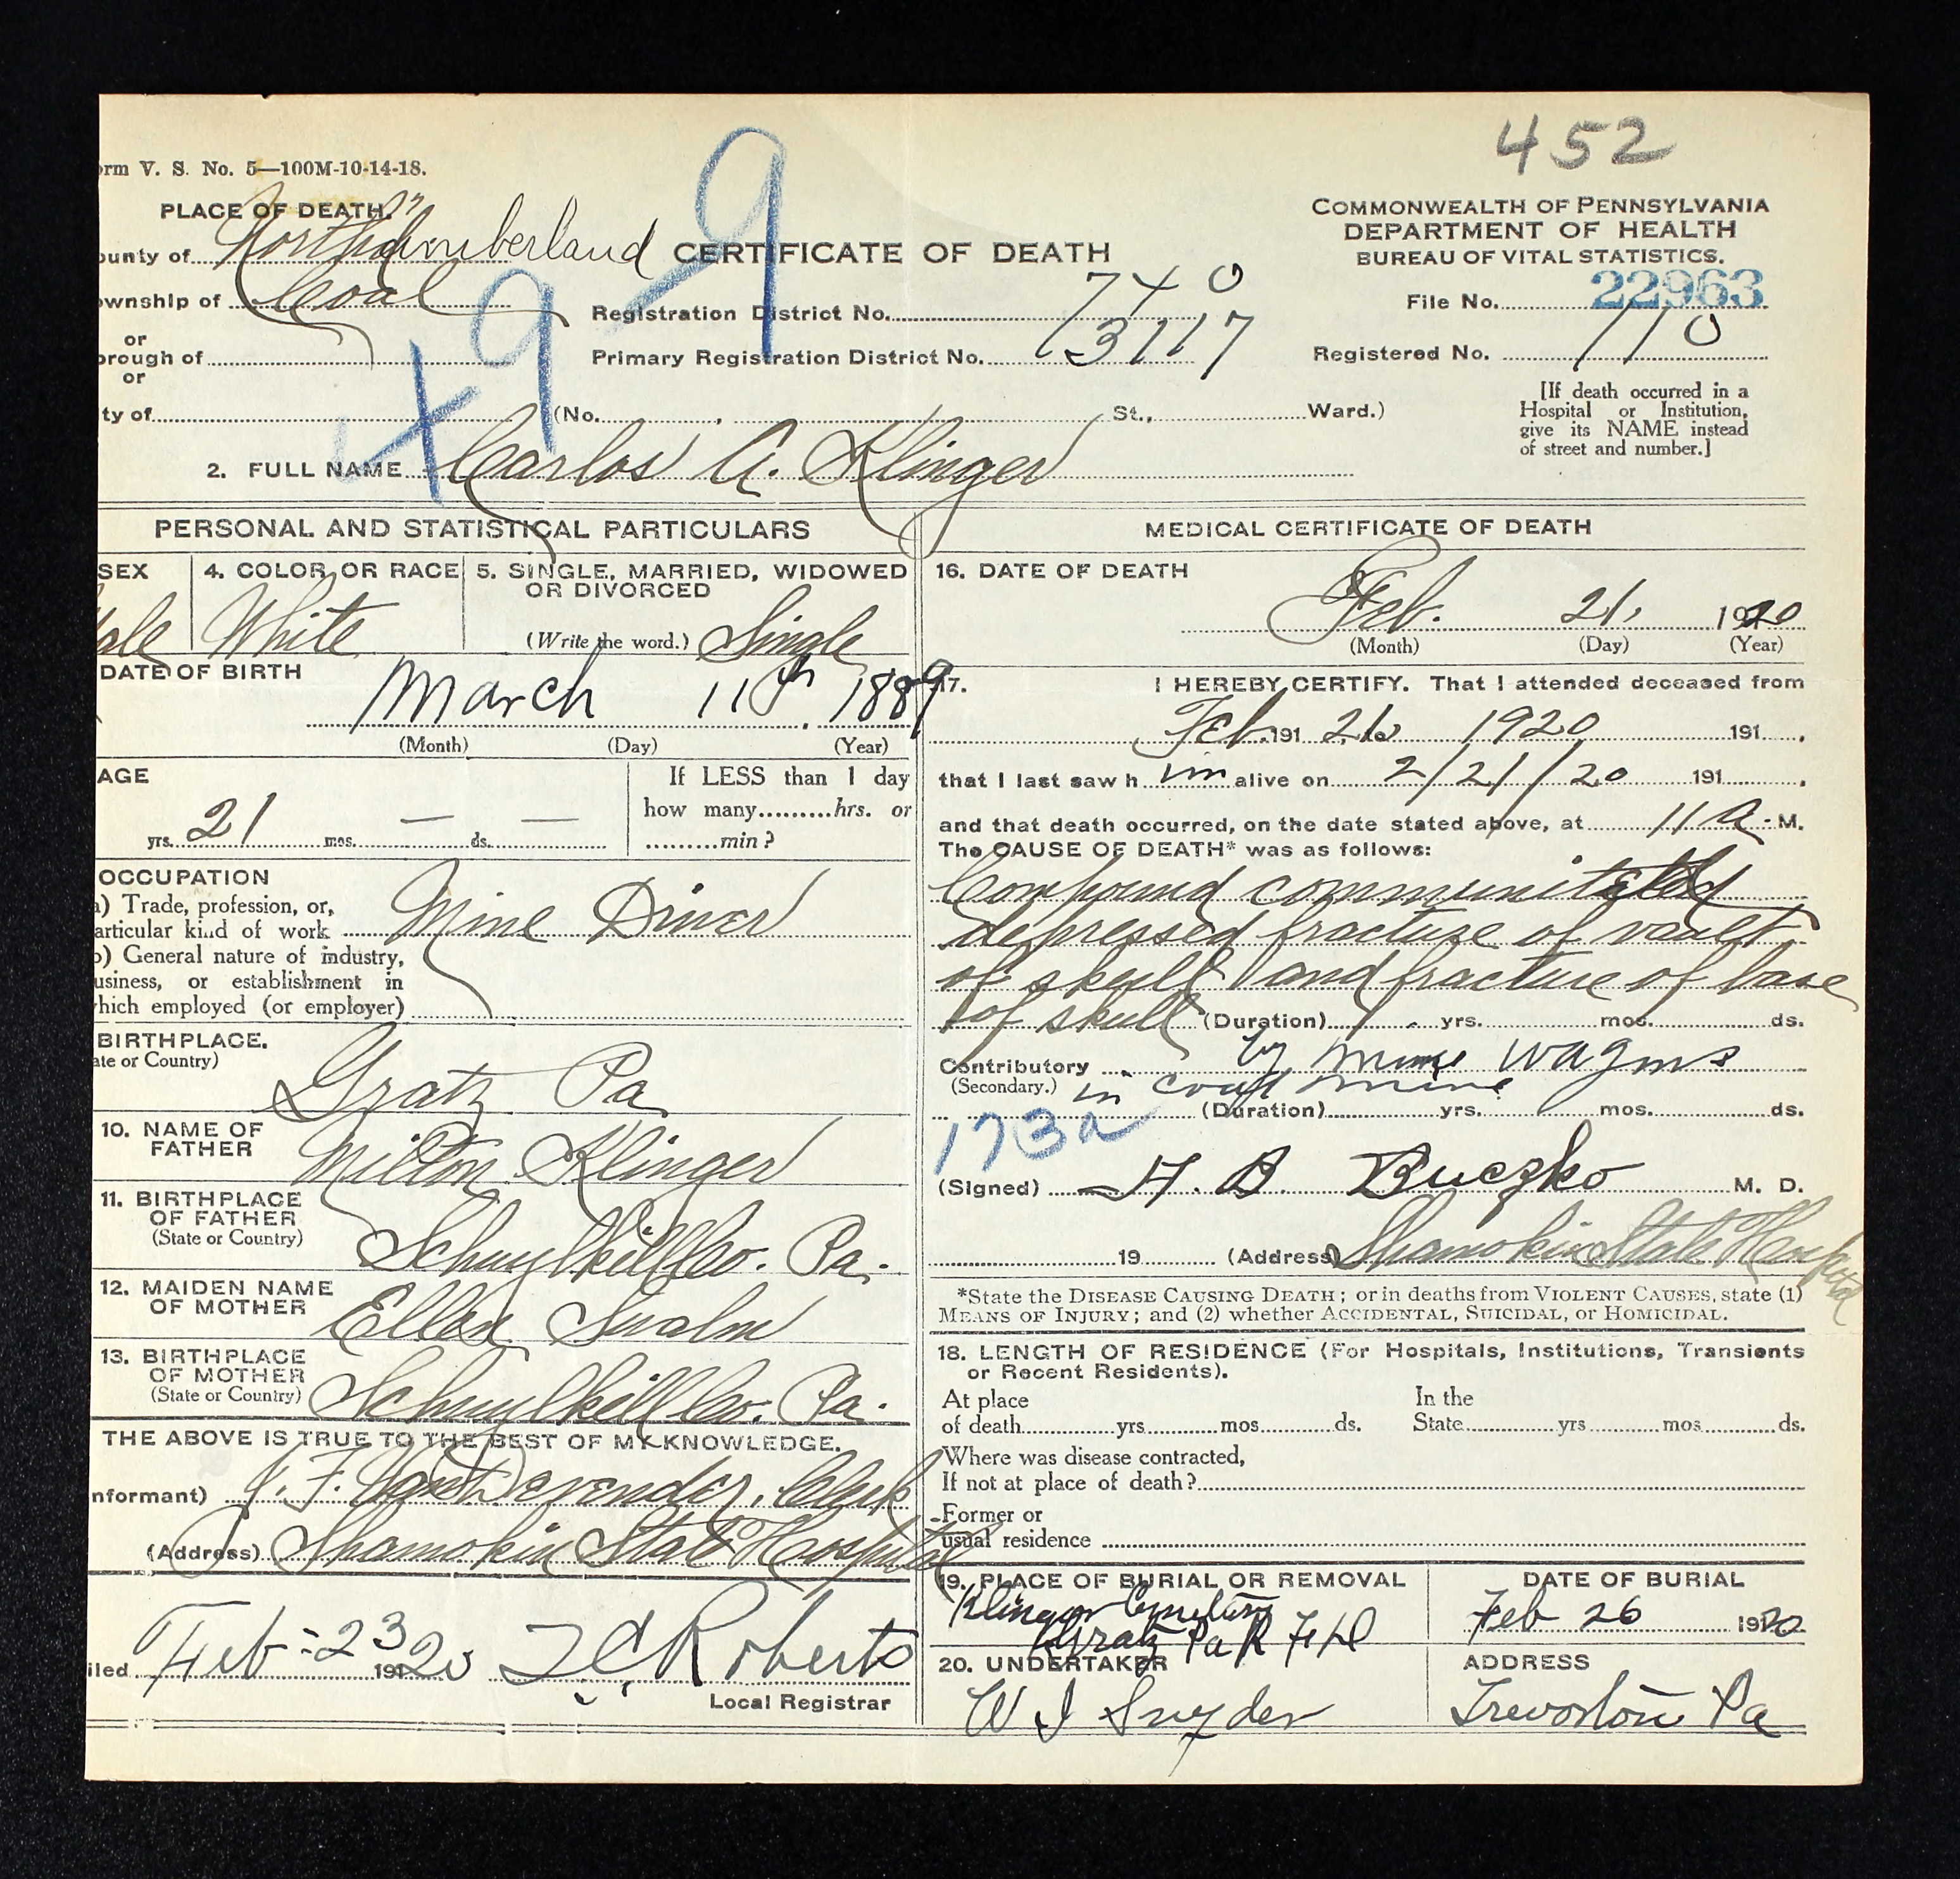 452
orm V. S. No. 5—100M-10-14-18.
PLACE OF DEATH.
ounty of Northumberland
CERTIFICATE OF DEATH
COMMONWEALTH OF PENNSYLVANIA
DEPARTMENT OF HEALTH
BUREAU OF VITAL STATISTICS.
ownship of Coal
Registration District No. 740
File No. 22963
or
orough of
Primary Registration District No. 3117
Registered No. 110
or
ty of (No. , St., Ward.)
[If death occurred in a
Hospital or Institution,
give its NAME instead
of street and number.]
99
2. FULL NAME Carlos A. Klinger
PERSONAL AND STATISTICAL PARTICULARS
SEX
ale
4. COLOR OR RACE
White
5. SINGLE, MARRIED, WIDOWED
OR DIVORCED
(Write the word.) Single
DATE OF BIRTH
March 11th. 1889
(Month) (Day) (Year)
AGE
21 yrs. — mos. — ds.
If LESS than 1 day
how many.........hrs. or
.........min?
OCCUPATION
a) Trade, profession, or,
articular kind of work Mine Driver
b) General nature of industry,
usiness, or establishment in
hich employed (or employer)
BIRTHPLACE.
ate or Country)
Gratz Pa
10. NAME OF
FATHER
Milton Klinger
11. BIRTHPLACE
OF FATHER
(State or Country)
Schuylkill Co. Pa.
12. MAIDEN NAME
OF MOTHER
Ellen Swalm
13. BIRTHPLACE
OF MOTHER
(State or Country)
Schuylkill Co. Pa.
THE ABOVE IS TRUE TO THE BEST OF MY KNOWLEDGE.
nformant) J. F. Van Devender, Clerk
(Address) Shamokin State Hospital
iled Feb - 23 1920
Roberts
Local Registrar
MEDICAL CERTIFICATE OF DEATH
16. DATE OF DEATH
Feb. 21, 1920
(Month) (Day) (Year)
17. I HEREBY CERTIFY. That I attended deceased from
Feb. 191 21, 1920 191 ,
that I last saw h im alive on 2/21/20 191 ,
and that death occurred, on the date stated above, at 11 a. M.
The CAUSE OF DEATH* was as follows:
Compound communitated
depressed fracture of vault
of skull and fracture of base
of skull (Duration) yrs. mos. ds.
Contributory by mine wagons
(Secondary.) in coal mine
(Duration) yrs. mos. ds.
173a
(Signed) H. B. Buczko M. D.
19 (Address) Shamokin State Hospital
*State the DISEASE CAUSING DEATH; or in deaths from VIOLENT CAUSES, state (1)
MEANS OF INJURY; and (2) whether ACCIDENTAL, SUICIDAL, or HOMICIDAL.
18. LENGTH OF RESIDENCE (For Hospitals, Institutions, Transients
or Recent Residents).
At place
of death yrs mos ds.
In the
State yrs mos ds.
Where was disease contracted,
If not at place of death?
Former or
usual residence
19. PLACE OF BURIAL OR REMOVAL
Klinger Cemetery
Gratz Pa R F D
DATE OF BURIAL
Feb 26 1920
20. UNDERTAKER
W I Snyder
ADDRESS
Trevorton Pa